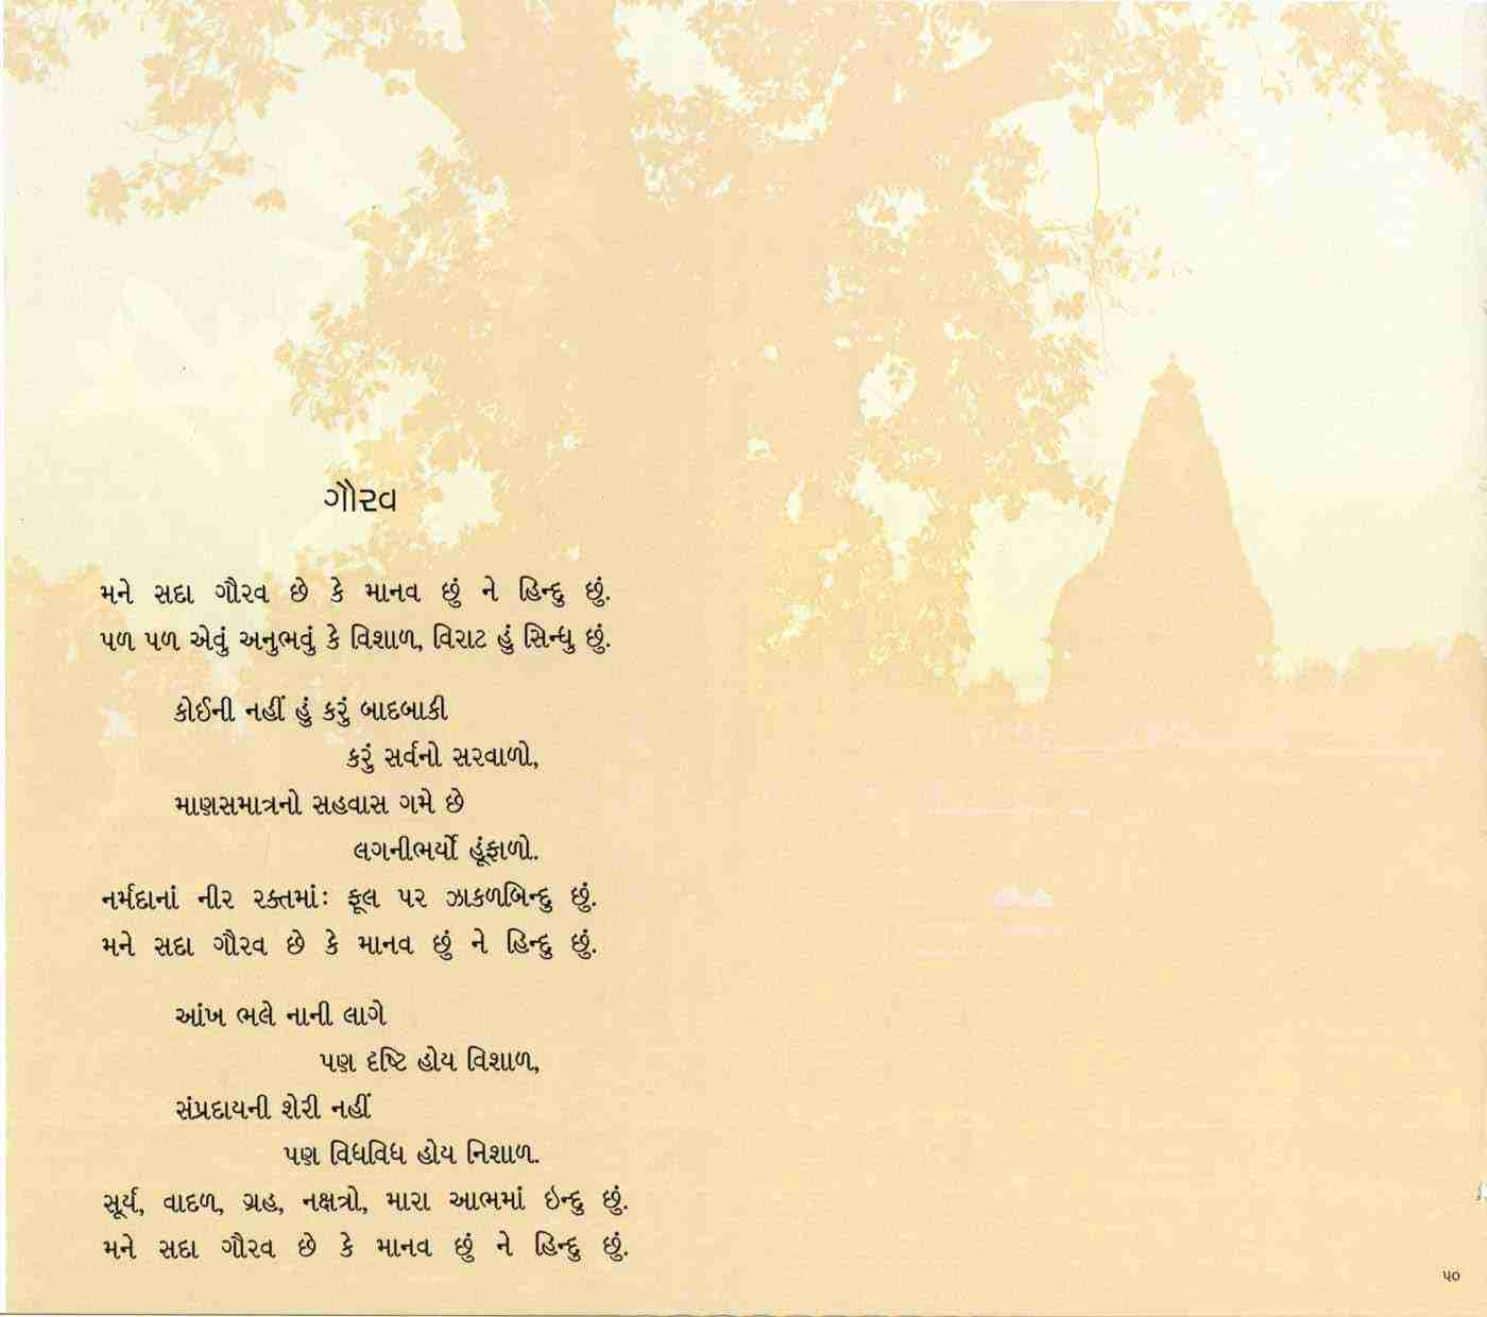 ગૌરવ
મને સદા ગૌરવ છે કે માનવ છું ને હિન્દુ છું.
પળ પળ એવું અનુભવું કે વિશાળ, વિરાટ હું સિન્ધુ છું.
કોઈની નહીં હું કરું બાદબાકી
કરું સર્વનો સરવાળો,
માણસમાત્રનો સહવાસ ગમે છે
લગનીભર્યો હૂંફાળો.
નર્મદાનાં નીર રક્તમાંઃ ફૂલ પર ઝાકળબિન્દુ છું.
મને સદા ગૌરવ છે કે માનવ છું ને હિન્દુ છું.
આંખ ભલે નાની લાગે
પણ દૃષ્ટિ હોય વિશાળ,
સંપ્રદાયની શેરી નહીં
પણ વિધવિધ હોય નિશાળ.
સૂર્ય, વાદળ, ગ્રહ, નક્ષત્રો, મારા આભમાં ઇન્દુ છું.
મને સદા ગૌરવ છે કે માનવ છું ને હિન્દુ છું.
૫૦